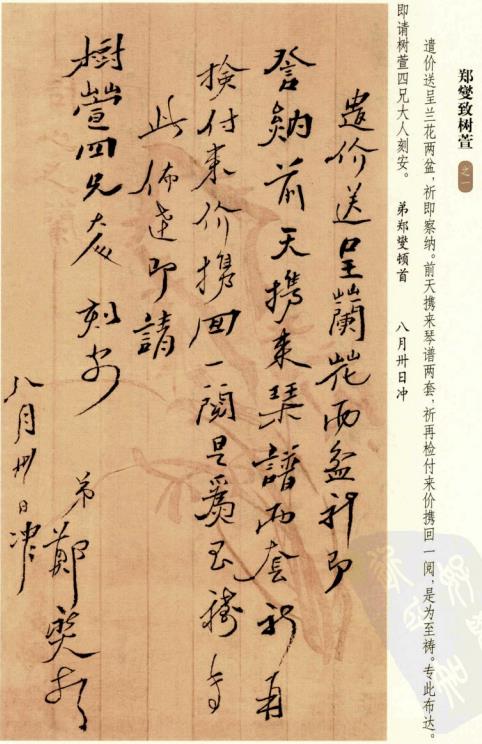 郑燮致树萱 之一
遣价送呈兰花两盆，祈即察纳。前天携来琴谱两套，祈再检付来价携回一阅，是为至祷。专此布达。
即请树萱四兄大人刻安。 弟郑燮顿首 八月卅日冲
遣价送呈蘭花两盆祈即
詧納前天携来琹譜两套祈再
捡付来价携回一閲是爲至祷专
此佈達即請
樹萱四兄大人刻安
弟鄭燮顿首
八月卅日冲